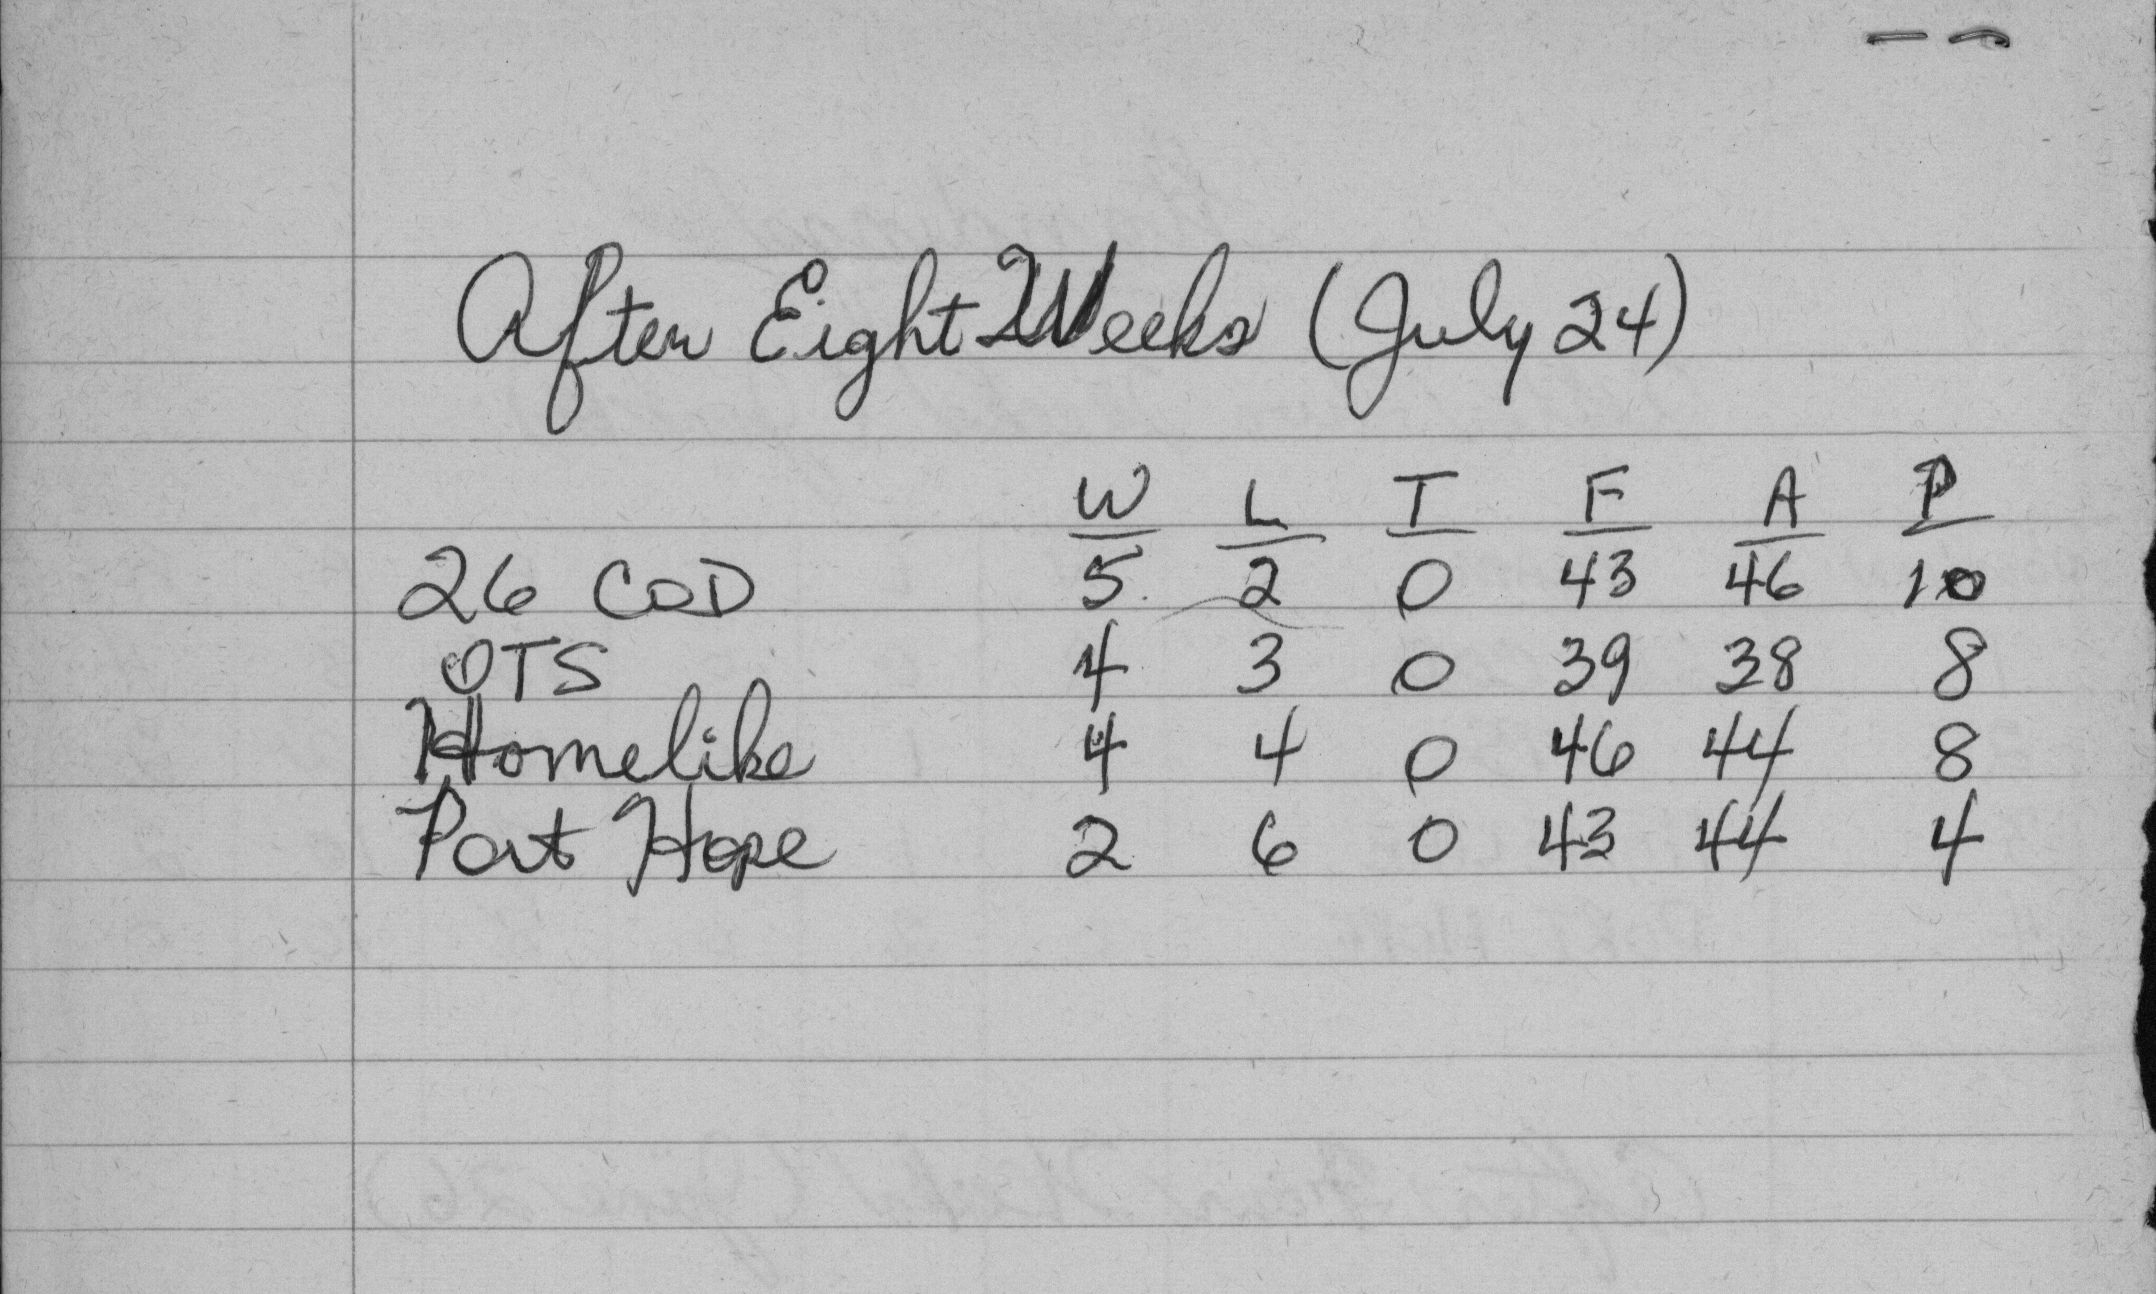 After Eight Weeks (July 24)
W L T F A P
26 COD 5 2 0 43 46 10
OTS 4 3 0 39 38 8
Homelike 4 4 0 46 44 8
Port Hope 2 6 0 43 44 4